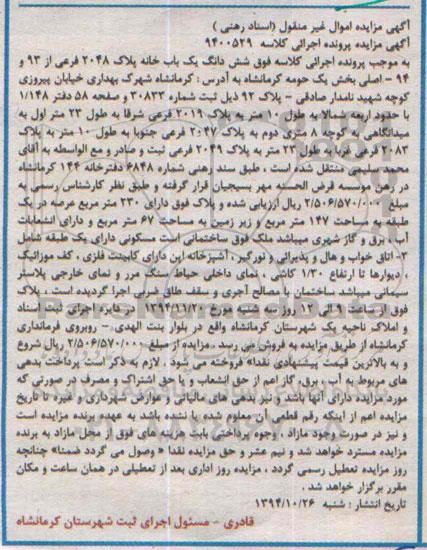 آگهی مزایده اموال غیر منقول (اسناد رهنی )
آگهی مزایده پرونده اجرائی کلاسه ۹۴۰۰۵۲۹
به موجب پرونده اجرائی کلاسه فوق شش دانگ یک باب خانه پلاک ۲۰۴۸ فرعی از ۹۳ و
۹۴ - اصلی بخش یک حومه کرمانشاه به آدرس : کرمانشاه شهرک بهداری خیابان پیروزی
کوچه شهید نامدار صادقی - پلاک ۹۲ ذیل ثبت شماره ۳۰۸۳۳ و صفحه ۵۸ دفتر ۱/۱۴۸
با حدود اربعه شمالا به طول ۱۰ متر به پلاک ۲۰۱۹ فرعی شرقا به طول ۲۳ متر اول به
میدانگاهی به کوچه ۸ متری دوم به پلاک ۲۰۴۷ فرعی جنوبا به طول ۱۰ متر به پلاک
۲۰۸۳ فرعی غربا به طول ۲۳ متر به پلاک ۲۰۴۹ فرعی ثبت و صادر و مع الواسطه به آقای
محمد سلیمی منتقل شده است ، طبق سند رهنی شماره ۶۸۴۸ دفترخانه ۱۴۴ کرمانشاه
در رهن موسسه قرض الحسنه مهر بسیجیان قرار گرفته و طبق نظر کارشناس رسمی به
مبلغ ۲/۵۰۶/۵۷۰/۰۰۰ ریال ارزیابی شده و پلاک فوق دارای ۲۳۰ متر مربع عرصه در یک
طبقه به مساحت ۱۴۷ متر مربع و زیر زمین به مساحت ۶۷ متر مربع و دارای انشعابات
آب ، برق و گاز شهری میباشد ملک فوق ساختمانی است مسکونی دارای یک طبقه شامل
۳- اتاق خواب و هال و پذیرائی و نورگیر ، آشپزخانه اپن دارای کابینت فلزی ، کف موزائیک
، دیوارها تا ارتفاع ۱/۳۰ کاشی ، نمای داخلی حیاط سنگ مرر و نمای خارجی پلاستر
سیمانی میباشد ساختمان با مصالح آجری و سقف طاق ضربی اجرا گردیده است ، پلاک
فوق از ساعت ۹ الی ۱۲ روز سه شنبه مورخ ۱۳۹۴/۱۱/۲۰ در دایره اجرای ثبت اسناد
و املاک ناحیه یک شهرستان کرمانشاه واقع در بلوار بنت الهدی،- روبروی فرمانداری
کرمانشاه از طریق مزایده به فروش می رسد . مزایده از مبلغ ۲/۵۰۶/۵۷۰/۰۰۰ ریال شروع
و به بالاترین قیمت پیشنهادی نقدا» فروخته می شود . لازم به ذکر است پرداخت بدهی
های مربوط به آب ، برق، گاز اعم از حق انشعاب و یا حق اشتراک و مصرف در صورتی که
مورد مزایده دارای آنها باشد و نیز بدهی های مالیاتی و عوارض شهرداری و غیره تا تاریخ
مزایده اعم از اینکه رقم قطعی آن معلوم شده یا نشده باشد به عهده برنده مزایده است
و نیز در صورت وجود مازاد ، وجوه پرداختی بابت هزینه های فوق از محل مازاد به برنده
مزایده مسترد خواهد شد و نیم عشر و حق مزایده نقدا « وصول می گردد ضمنا» چنانچه
روز مزایده تعطیل رسمی گردد ، مزایده روز اداری بعد از تعطیلی در همان ساعت و مکان
مقرر برگزار خواهد شد .
تاریخ انتشار : شنبه ۱۳۹۴/۱۰/۲۶
قادری - مسئول اجرای ثبت شهرستان کرمانشاه